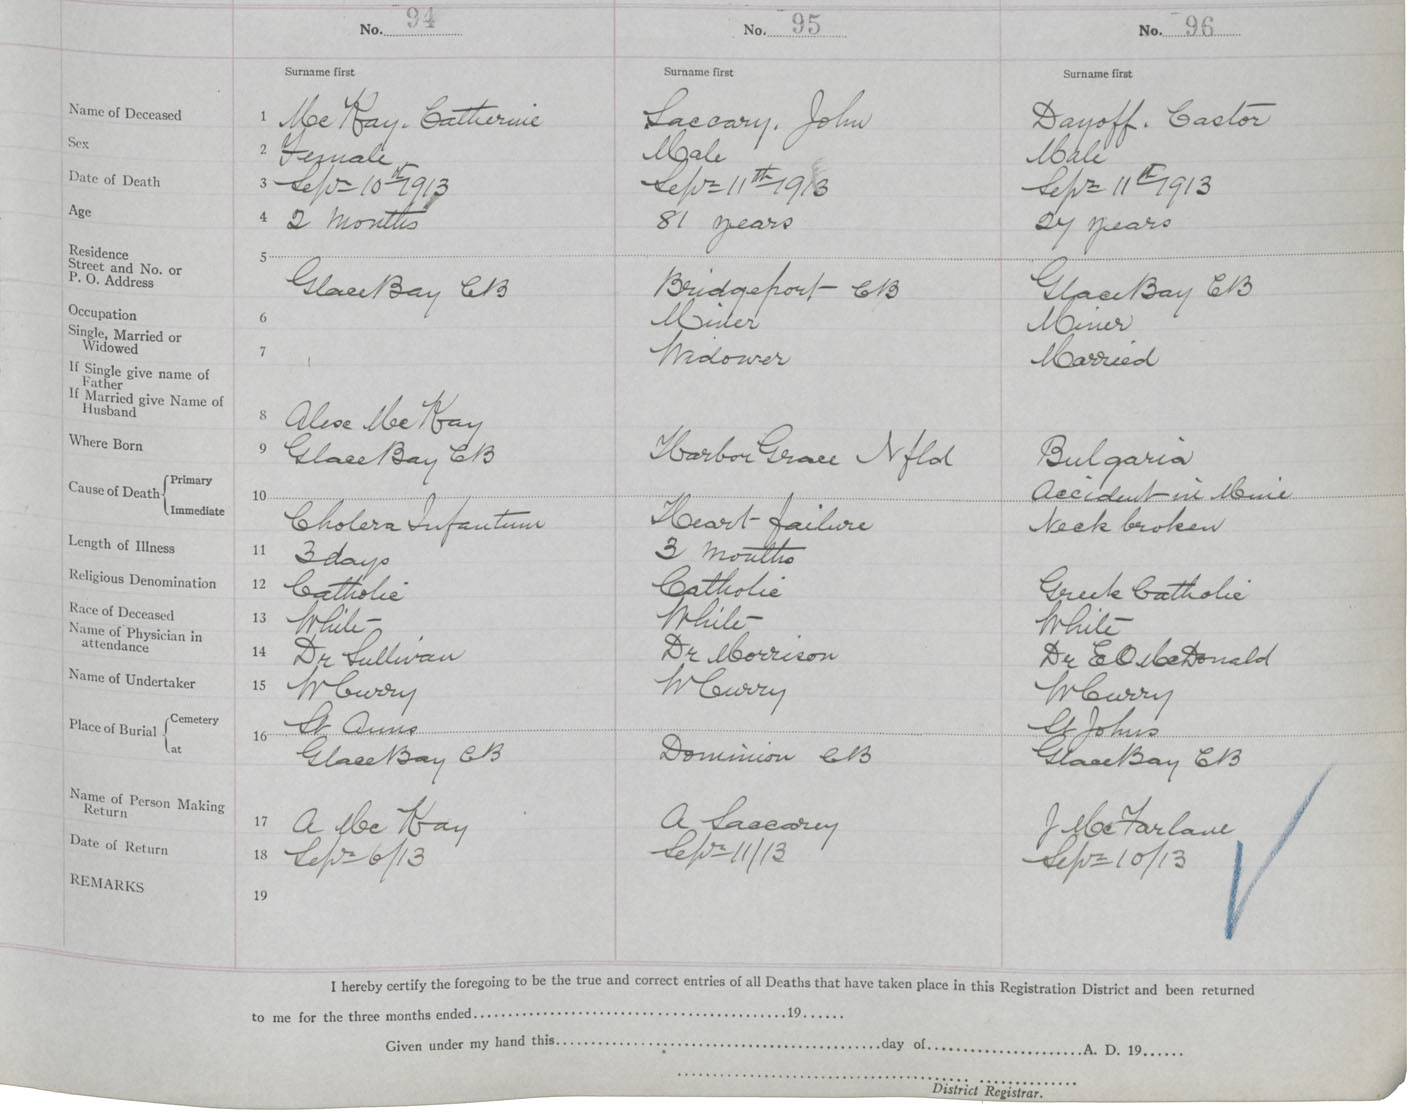 No. 94 No. 95 No. 96
Surname first Surname first Surname first
Name of Deceased 1 McKay. Catherine Saccary. John Dayoff. Castor
Sex 2 Female Male Male
Date of Death 3 Sept 10th 1913 Sept 11th 1913 Sept 11th 1913
Age 4 2 Months 81 years 27 years
Residence
Street and No. or 5
P. O. Address Glace Bay CB Bridgeport CB Glace Bay CB
Occupation 6 Miner Miner
Single, Married or
Widowed 7 Widower Married
If Single give name of
Father
If Married give Name of
Husband 8 Alex McKay
Where Born 9 Glace Bay CB Harbor Grace Nfld Bulgaria
Cause of Death Primary 10 Accident in Mine
Immediate Cholera Infantum Heart failure Neck broken
Length of Illness 11 3 days 3 Months
Religious Denomination 12 Catholic Catholic Greek Catholic
Race of Deceased 13 White White White
Name of Physician in
attendance 14 Dr Sullivan Dr Morrison Dr E O McDonald
Name of Undertaker 15 W Curry W Curry W Curry
Place of Burial Cemetery 16 St Anns St Johns
at Glace Bay CB Dominion CB Glace Bay CB
Name of Person Making
Return 17 A McKay A Saccary J McFarlane
Date of Return 18 Sept 6/13 Sept 11/13 Sept 10/13
REMARKS 19
I hereby certify the foregoing to be the true and correct entries of all Deaths that have taken place in this Registration District and been returned
to me for the three months ended 19
Given under my hand this day of A. D. 19
District Registrar.